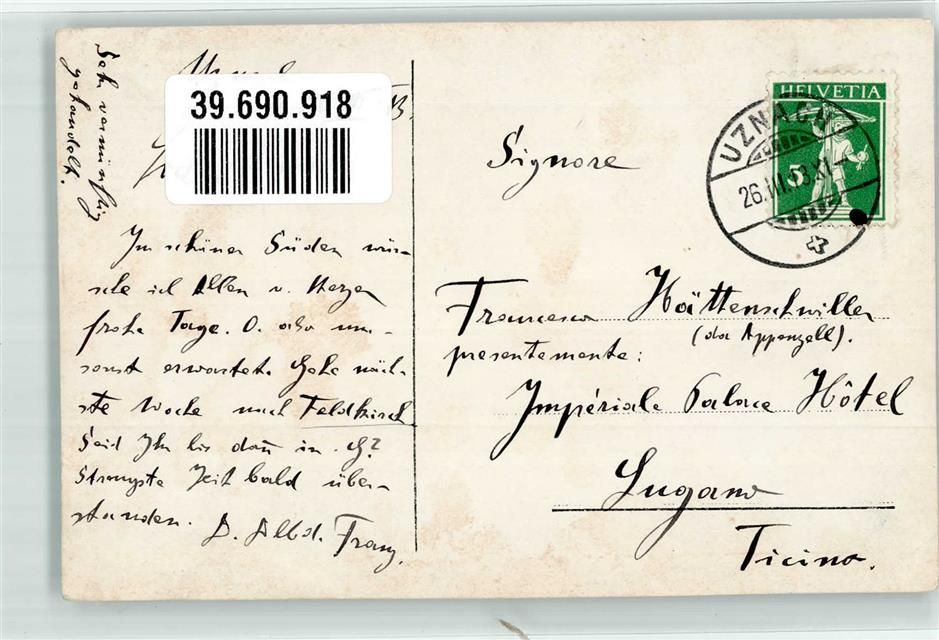 Sehr vernünftig
gehandelt.
39.690.918
B.
Im schönen Süden wün-
sche ich Allen v. Herzen
frohe Tage. O. also um-
sonst erwartet. Gehe näch-
ste Woche nach Feldkirch
Seid Ihr bis dañ in G?
Strengste Zeit bald über-
standen.
Franz.
HELVETIA
5
UZNACH
26.III.13.XI
Signore
Francesco Hättenschwiller
(da Appenzell).
presentemente:
Impériale Palace Hôtel
Lugano
Ticino.